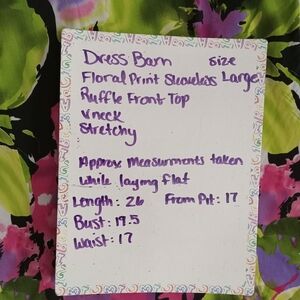 Dress Barn size
Floral Print Sleeveless Large
Ruffle Front Top
Vneck
Stretchy
Approx Measurments taken
while laying flat
Length: 26 From Pit: 17
Bust: 19.5
Waist: 17